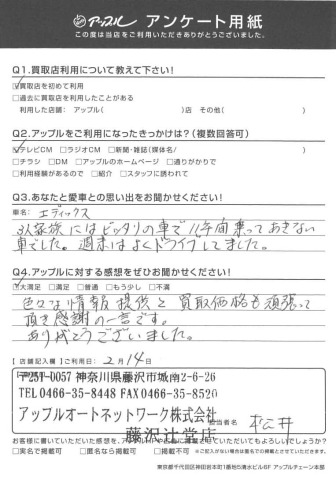 アップル アンケート用紙
この度は当店をご利用いただきありがとうございました。
Q1.買取店利用について教えて下さい!
☑買取店を初めて利用
□過去に買取店を利用したことがある
利用した店舗: アップル( )店 その他( )
Q2.アップルをご利用になったきっかけは?(複数回答可)
☑テレビCM □ラジオCM □新聞・雑誌(媒体名/ )
□チラシ □DM □アップルのホームページ □通りがかりで
□利用経験があるので □紹介 □スタッフに誘われて
Q3.あなたと愛車との思い出をお聞かせください!
車名: エディックス
3人家族にはピッタリの車で11年間乗ってあきない
車でした。週末はよくドライブしてました。
Q4.アップルに対する感想をぜひお聞かせください!
☑大満足 □満足 □普通 □もう少し □不満
色々な情報提供と買取価格も頑張って
頂き感謝の一言です。
ありがとうございました。
【店舗記入欄】ご利用日: 2月14日
〒251-0057 神奈川県藤沢市城南2-6-26
TEL0466-35-8448 FAX0466-35-8520
アップルオートネットワーク株式会社
藤沢辻堂店
担当者名 松井
お客様に書いていただいた感想を、アップルHPや広告に掲載させていただいてもよろしいでしょうか?
□実名で掲載可 □匿名なら掲載可 □掲載不可 ※ご記入がない場合は匿名での掲載とさせていただきます。
東京都千代田区神田岩本町1番地5清水ビル6F アップルチェーン本部